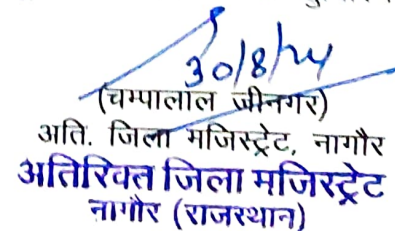 30/8/24
(चम्पालाल जीनगर)
अति. जिला मजिस्ट्रेट, नागौर
अतिरिक्त जिला मजिस्ट्रेट
नागौर (राजस्थान)